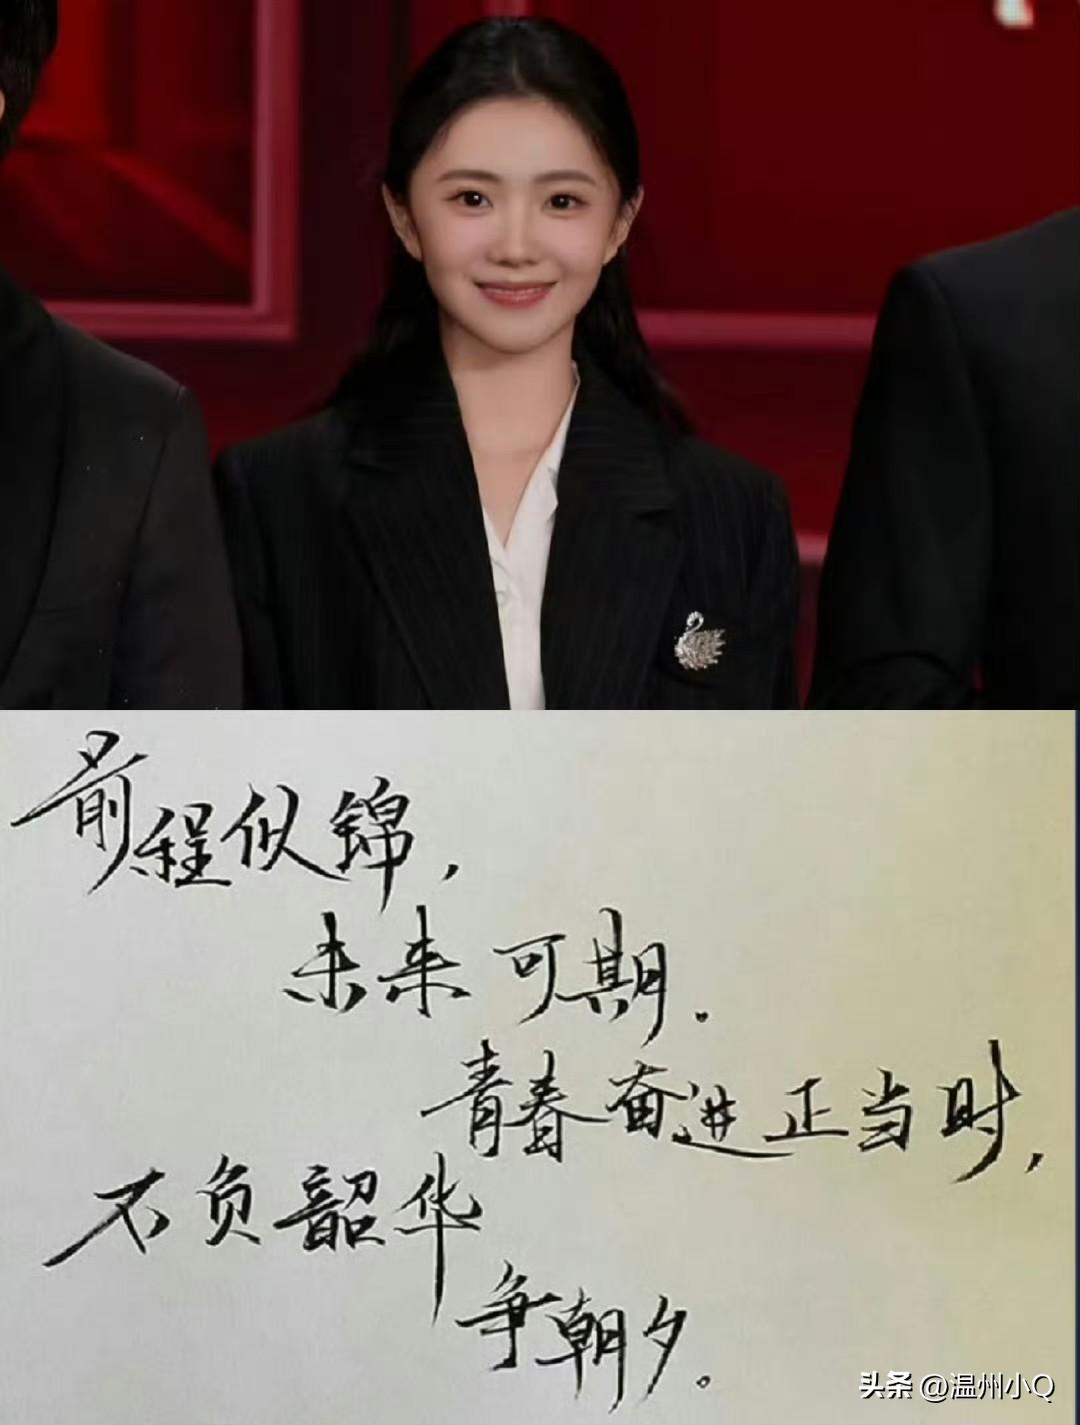 前程似锦，
未来可期．
青春奋进正当时，
不负韶华
争朝夕。
头条 @温州小Q